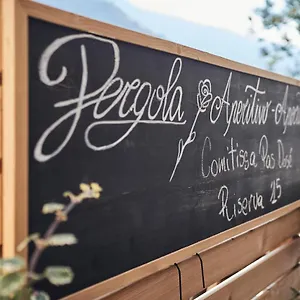 Pergola Aperitivo-
Comitissa Pas Dosé
Riserva 15